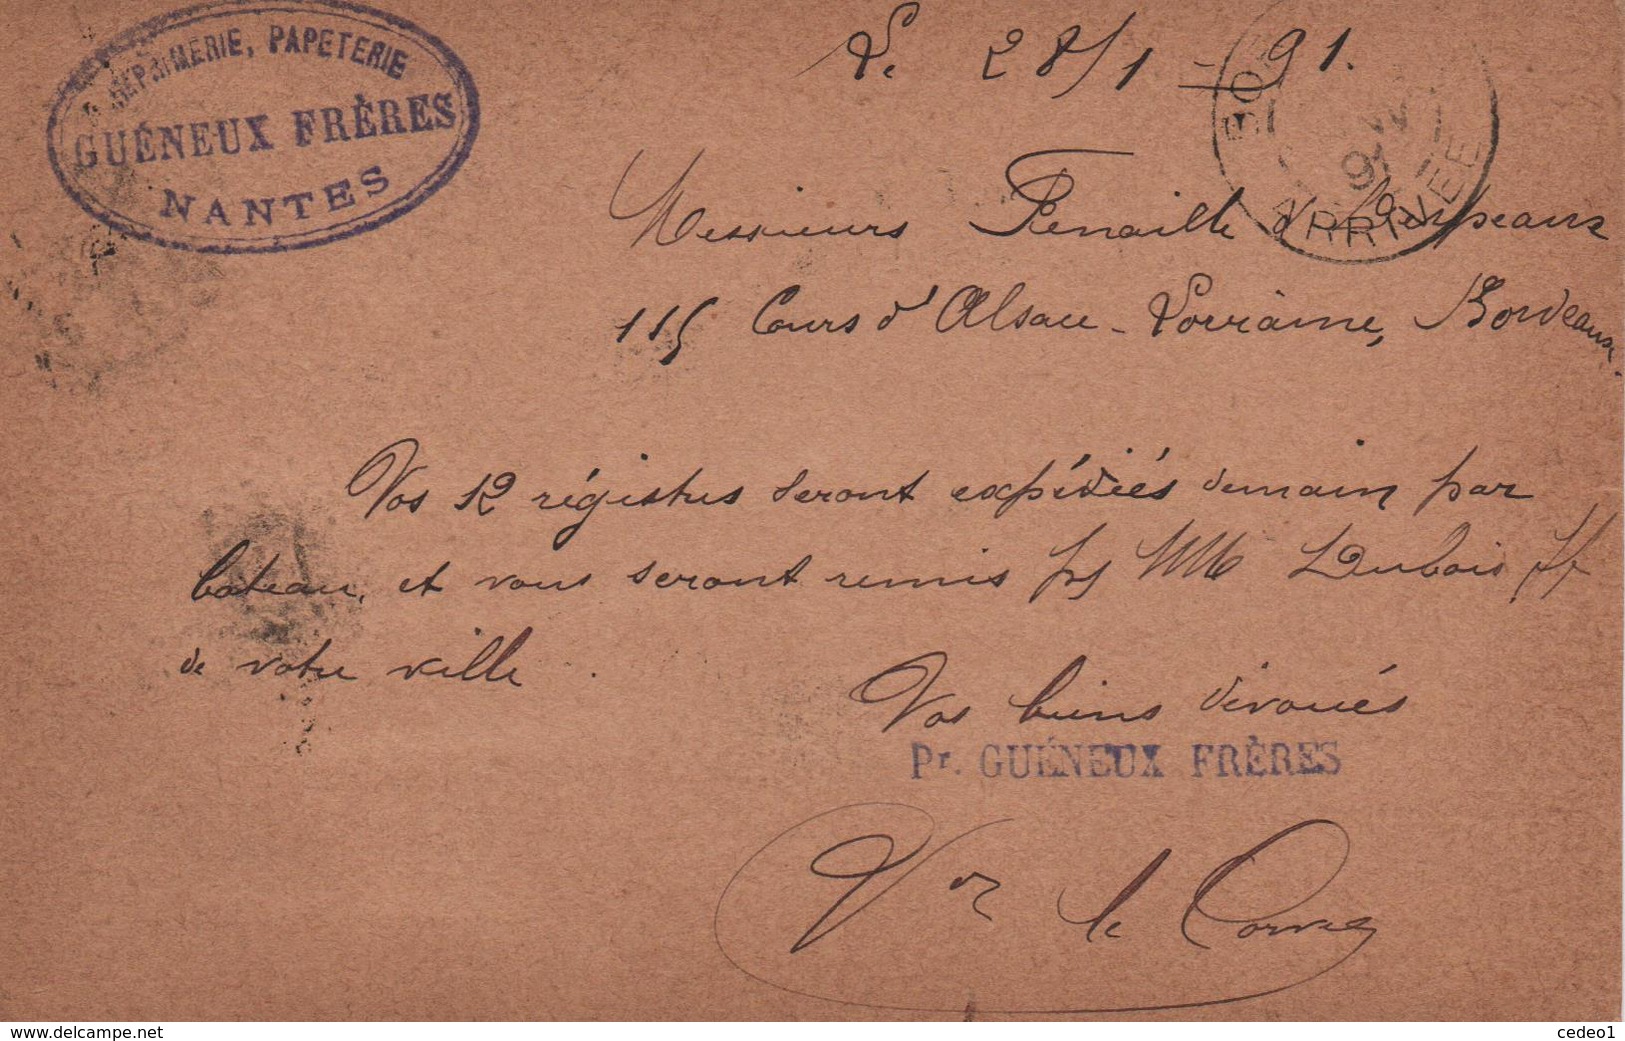 IMPRIMERIE, PAPETERIE
GUÉNEUX FRÈRES
NANTES
Le 28/1 - 91.
ARRIVEE
Messieurs Fenaille & Despeaux
115 Cours d'Alsace-Lorraine, Bordeaux.
Vos 12 régistres seront expédiés demain par
bateau, et vous seront remis par MM Dubois ff
de votre ville.
Vos biens dévoués
Pr. GUÉNEUX FRÈRES
Vor le
www.delcampe.net
cedeo1